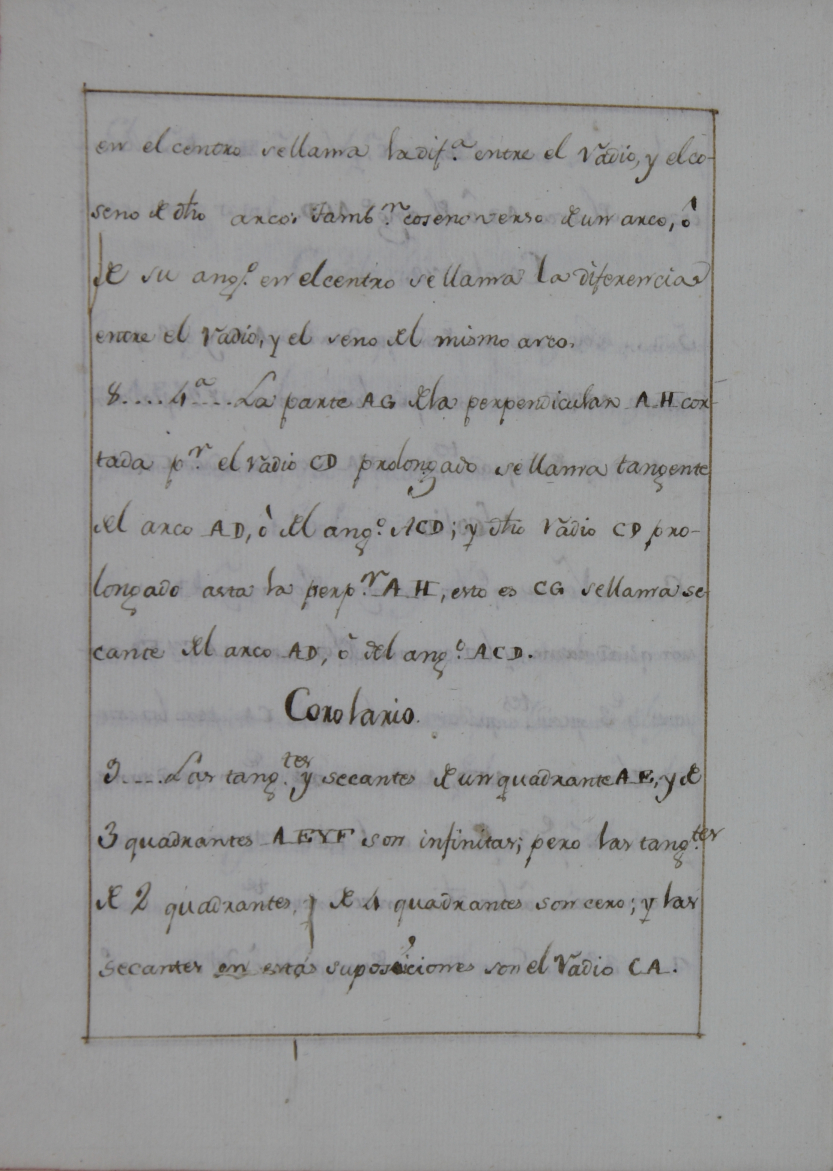 en el centro se llama la dif.ª entre el Radio, y el co-
seno de dho arco. Tamb.n coseno verso de un arco, ò
de su ang.º en el centro se llama la diferencia
entre el Radio, y el seno del mismo arco.
8.... 4.ª.... La parte AG de la perpendicular AH cor-
tada p.r el radio CD prolongado se llama tangente
del arco AD, ò del ang.º ACD; y dho Radio CD pro-
longado asta la perp.r AH, esto es CG se llama se-
cante del arco AD, ò del ang.º ACD.
Corolario.
9.... Las tang.tes y secantes de un quadrante AE, y de
3 quadrantes AEYF son infinitas; pero las tang.tes
de 2 quadrantes, y de 4 quadrantes son cero; y las
secantes en estas suposiciones son el Radio CA.